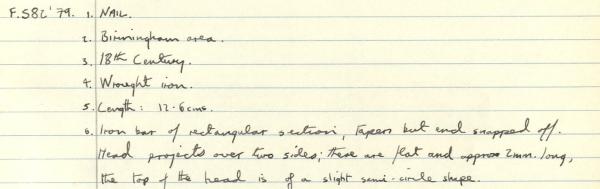 F.S82'79. 1. NAIL.
2. Birmingham area.
3. 18th Century.
4. Wrought iron.
5. Length: 12.6cms.
6. Iron bar of rectangular section, tapers but end snapped off.
Head projects over two sides; these are flat and approx 2mm. long,
the top of the head is of a slight semi-circle shape.